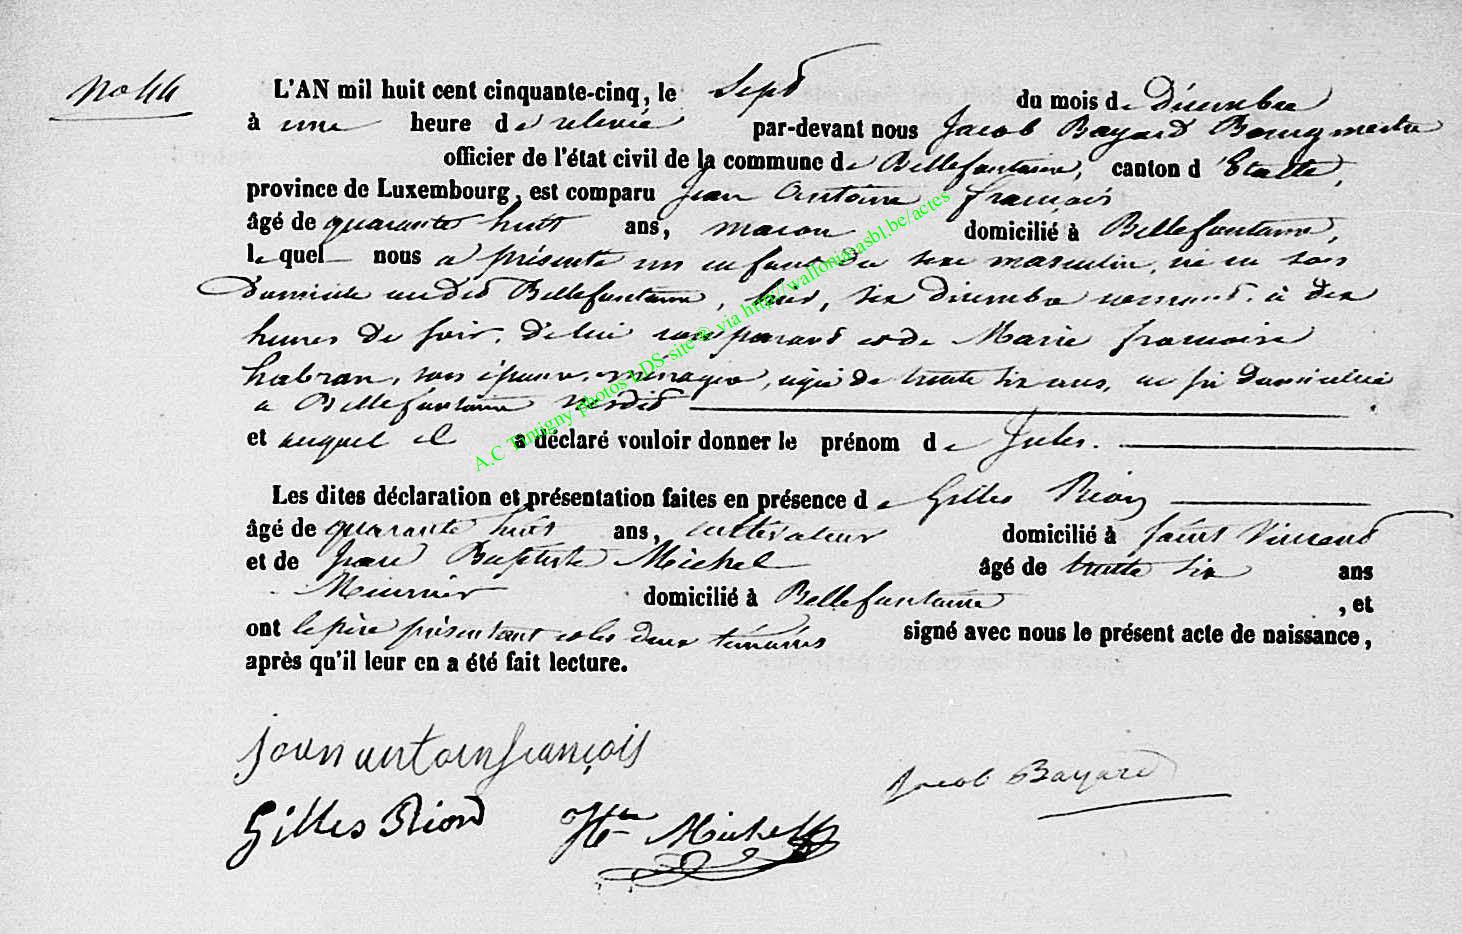 No 44
L'AN mil huit cent cinquante-cinq, le Sept du mois de Décembre
à une heure de relevée par-devant nous Jacob Bayard Bourgmestre
officier de l'état civil de la commune de Bellefontaine, canton d'Etalle,
province de Luxembourg, est comparu Jean Antoine françois
âgé de quarante huit ans, macon domicilié à Bellefontaine,
lequel nous a présenté un enfant du sexe masculin, né en son
Domicile audit Bellefontaine, hier, six décembre courant, à dix
heures du soir, de lui comparant et de Marie francoise
habran, son épouse, ménagère, agée de trente six ans, domiciliée
a Bellefontaine susdit
et auquel il a déclaré vouloir donner le prénom de Jules.
Les dites déclaration et présentation faites en présence de Gilles Rion
âgé de quarante huit ans, cultivateur domicilié à Saint Vincent
et de Jean Baptiste Michel âgé de trente six ans
Meunier domicilié à Bellefontaine, et
ont le père présentant et les deux témoins signé avec nous le présent acte de naissance,
après qu'il leur en a été fait lecture.
jean antoin françois
Jacob Bayard
Gilles Rion Michel
A.C Tintigny photos LDS-site © via http://walloniaasbl.be/actes